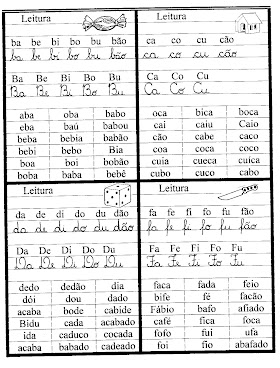 Leitura
ba be bi bo bu bão
ba be bi bo bu bão
Ba Be Bi Bo Bu
Ba Be Bi Bo Bu
aba oba babo
eba baú babou
beba bebia babão
bebi bebo Bia
boa boi bobão
baba bobo bebê
Leitura
ca co cu cão
ca co cu cão
Ca Co Cu
Ca Co Cu
oca bica boca
cai caiu Caio
cão cabe caco
coa cubo cabo
cuia cueca cuica
cubo cuco cabo
Leitura
da de di do du dão
da de di do du dão
Da De Di Do Du
Da De Di Do Du
dedo dedão dia
dói dou dado
acaba bode cabide
Bidu cada acabado
ida caduco cocada
acaba babado cadeado
Leitura
fa fe fi fo fu fão
fa fe fi fo fu fão
Fa Fe Fi Fo Fu
Fa Fe Fi Fo Fu
faca fada feio
bife fé facão
Fábio bafo afiado
café fica foca
fofo fui ufa
foi fio abafado